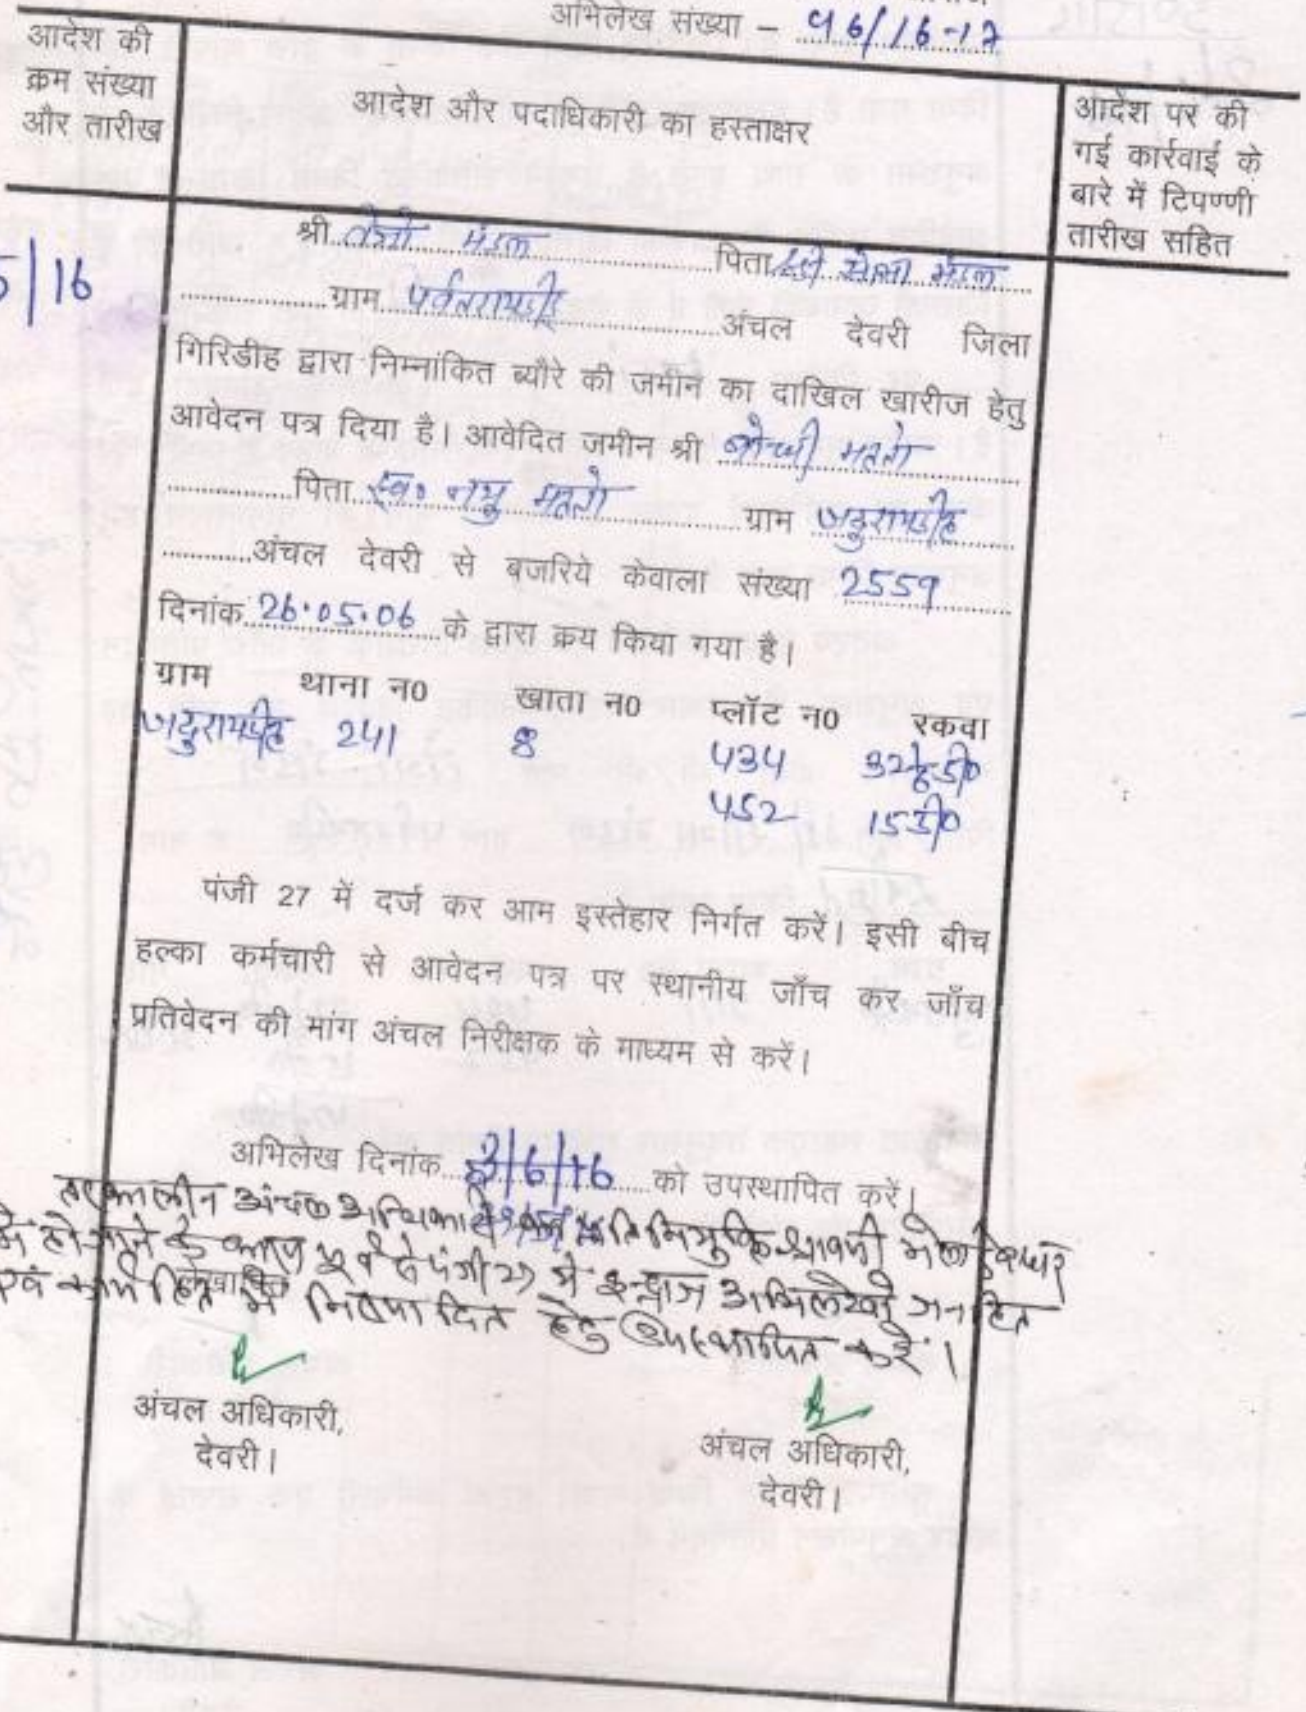 अभिलेख संख्या – 96/16-17
आदेश की
क्रम संख्या
और तारीख
आदेश और पदाधिकारी का हस्ताक्षर
आदेश पर की
गई कार्रवाई के
बारे में टिपण्णी
तारीख सहित
5/16
श्री मंडल पिता मंडल
ग्राम पर्वतरायडीह अंचल देवरी जिला
गिरिडीह द्वारा निम्नांकित ब्यौरे की जमीन का दाखिल खारीज हेतु
आवेदन पत्र दिया है। आवेदित जमीन श्री महतो
पिता स्व० नथु महतो ग्राम जदुरायडीह
अंचल देवरी से बजरिये केवाला संख्या 2559
दिनांक 26.05.06 के द्वारा क्रय किया गया है।
ग्राम थाना न0 खाता न0 प्लॉट न0 रकवा
जदुरायडीह 241 8 434
452 15डी०
पंजी 27 में दर्ज कर आम इस्तेहार निर्गत करें। इसी बीच
हल्का कर्मचारी से आवेदन पत्र पर स्थानीय जाँच कर जाँच
प्रतिवेदन की मांग अंचल निरीक्षक के माध्यम से करें।
अभिलेख दिनांक /6/16 को उपस्थापित करें।
तत्कालीन अंचल अधिकारी प्रतिनियुक्ति श्रावणी मेला देवघर
में हो जाने के कारण पूर्व से पंजी 27 में इन्द्राज अभिलेखों जनहित
एवं कार्य हित में निष्पादित हेतु उपस्थापित करें।
अंचल अधिकारी,
देवरी।
अंचल अधिकारी,
देवरी।